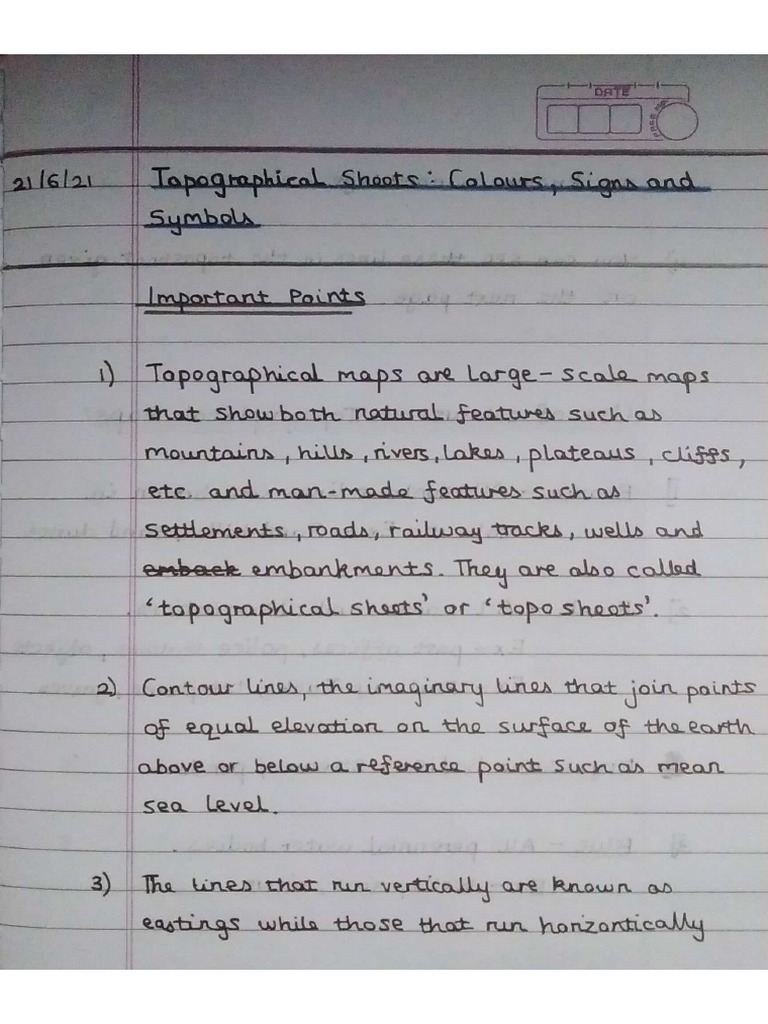 DATE
21/6/21 Topographical Sheets: Colours, Signs and
Symbols
Important Points
1) Topographical maps are large-scale maps
that show both natural features such as
mountains, hills, rivers, lakes, plateaus, cliffs,
etc. and man-made features such as
settlements, roads, railway tracks, wells and
emback embankments. They are also called
'topographical sheets' or 'topo sheets'.
2) Contour lines, the imaginary lines that join points
of equal elevation on the surface of the earth
above or below a reference point such as mean
sea level.
3) The lines that run vertically are known as
eastings while those that run horizontically